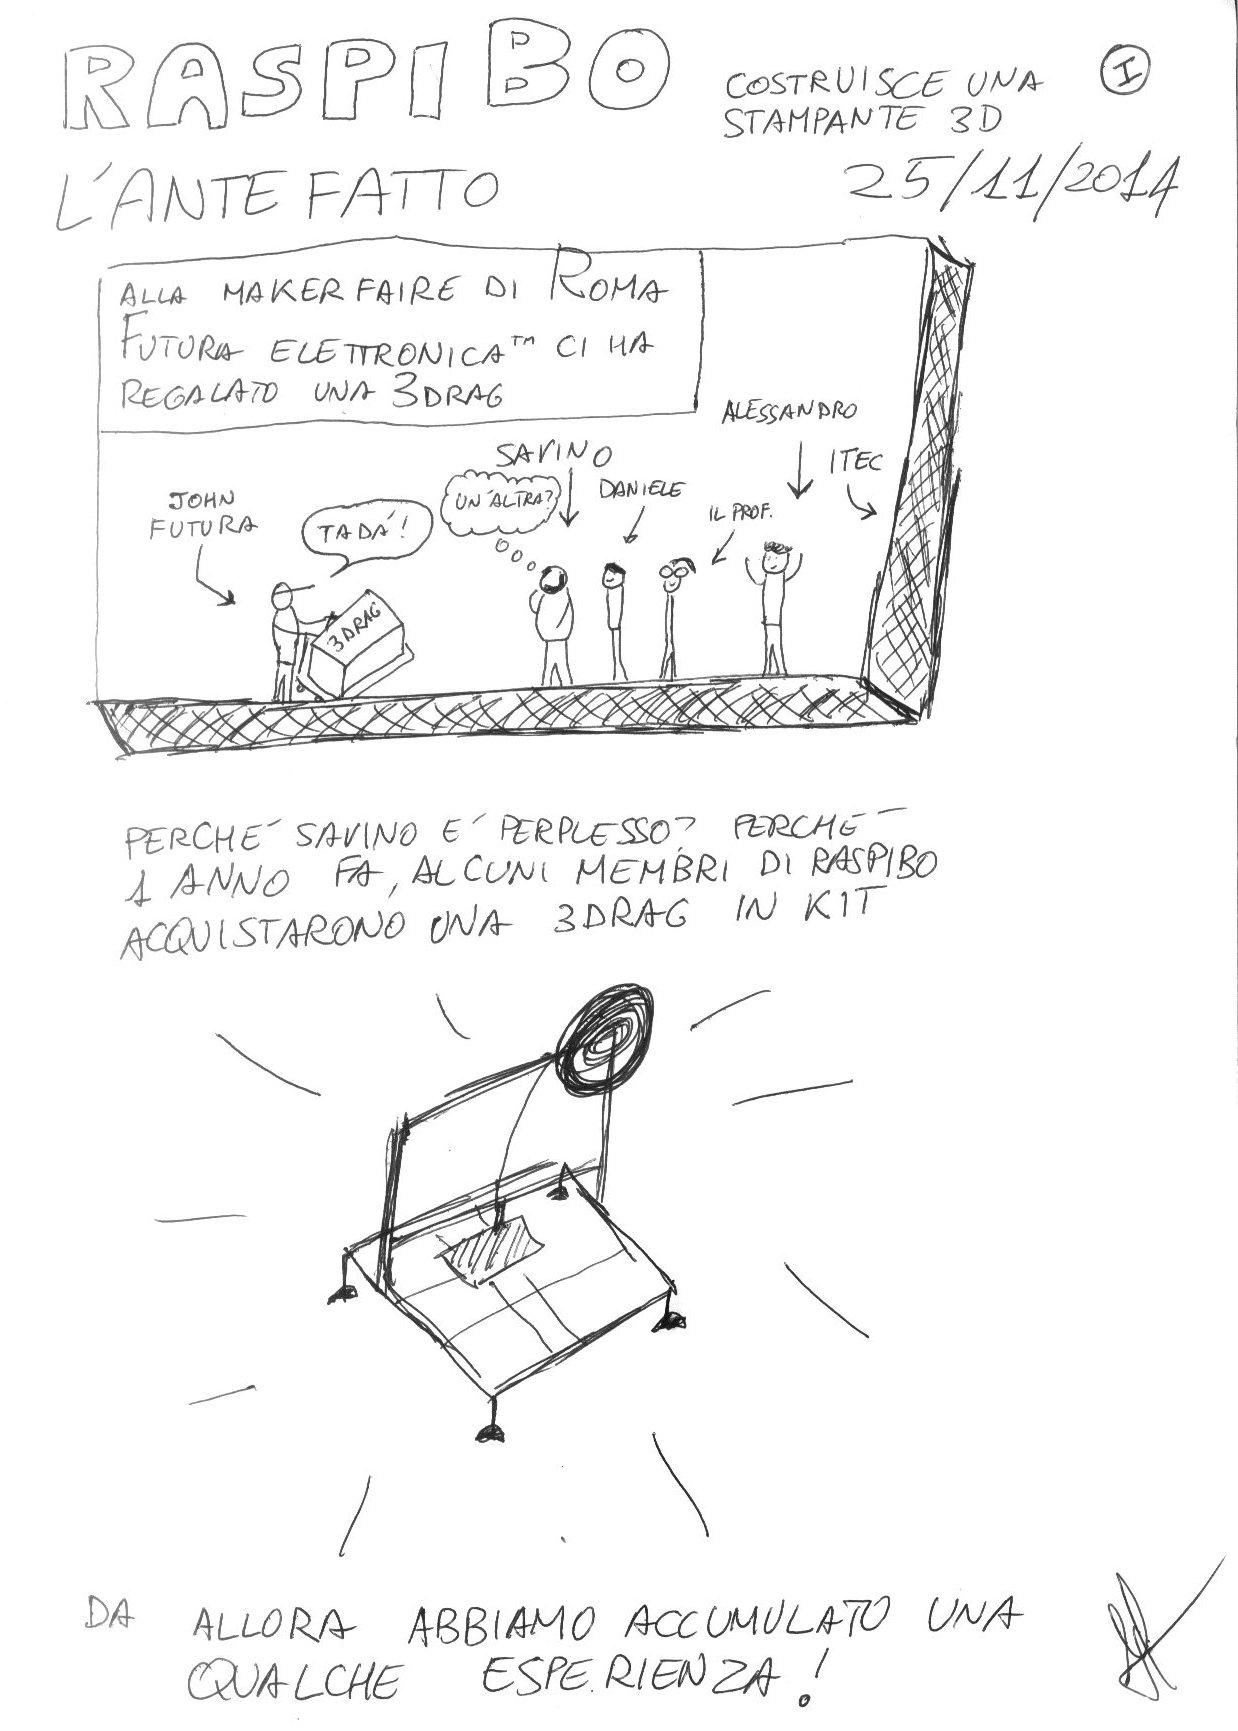 RASPIBO
COSTRUISCE UNA
STAMPANTE 3D
I
L'ANTEFATTO
25/11/2014
ALLA MAKER FAIRE DI ROMA
FUTURA ELETTRONICA™ CI HA
REGALATO UNA 3DRAG
JOHN
FUTURA
TADÀ!
3DRAG
SAVINO
UN'ALTRA?
DANIELE
IL PROF.
ALESSANDRO
ITEC
PERCHÉ SAVINO È PERPLESSO? PERCHÉ
1 ANNO FA, ALCUNI MEMBRI DI RASPIBO
ACQUISTARONO UNA 3DRAG IN KIT
DA ALLORA ABBIAMO ACCUMULATO UNA
QUALCHE ESPERIENZA!